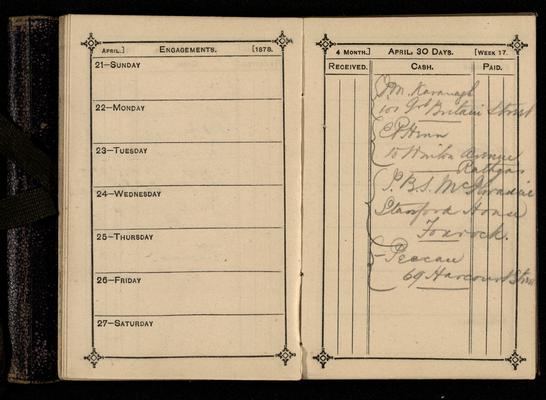 APRIL.] ENGAGEMENTS. [1878.
21—SUNDAY
22—MONDAY
23—TUESDAY
24—WEDNESDAY
25—THURSDAY
26—FRIDAY
27—SATURDAY
4 MONTH.] APRIL, 30 DAYS. [WEEK 17.
RECEIVED. CASH. PAID.
P.M. Kavanagh
100 Grt Britain Street
Avenue
Rathgar
Stanford House
Foxrock.
69 Harcourt Street